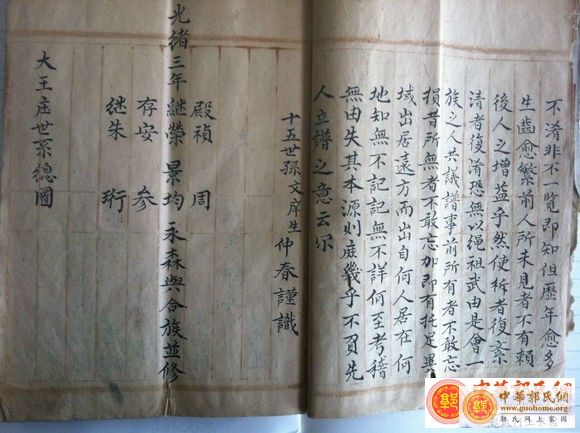 不淆非不一覧即知但歷年愈多
生齒愈繁前人所未見者不有賴
後人之增益乎然使析者復紊
清者後淆恐無以繩祖武由是會一
族之人共議譜事前所有者不敢忘
損昔所無者不敢忘加即有托足異
域出居遠方而出自何人居在何
地知無不記記無不詳何至考稽
無由失其本源則庶幾乎不負先
人立譜之意云尔
十五世孫文庠生仲春謹識
殿禎 周
光緒三年継榮 景均 永森與合族並修
存安 参
継朱 珩
大王庄世系總圖
中華郭氏網
中華郭氏網
WWW.guohome.org
郭氏网上家園